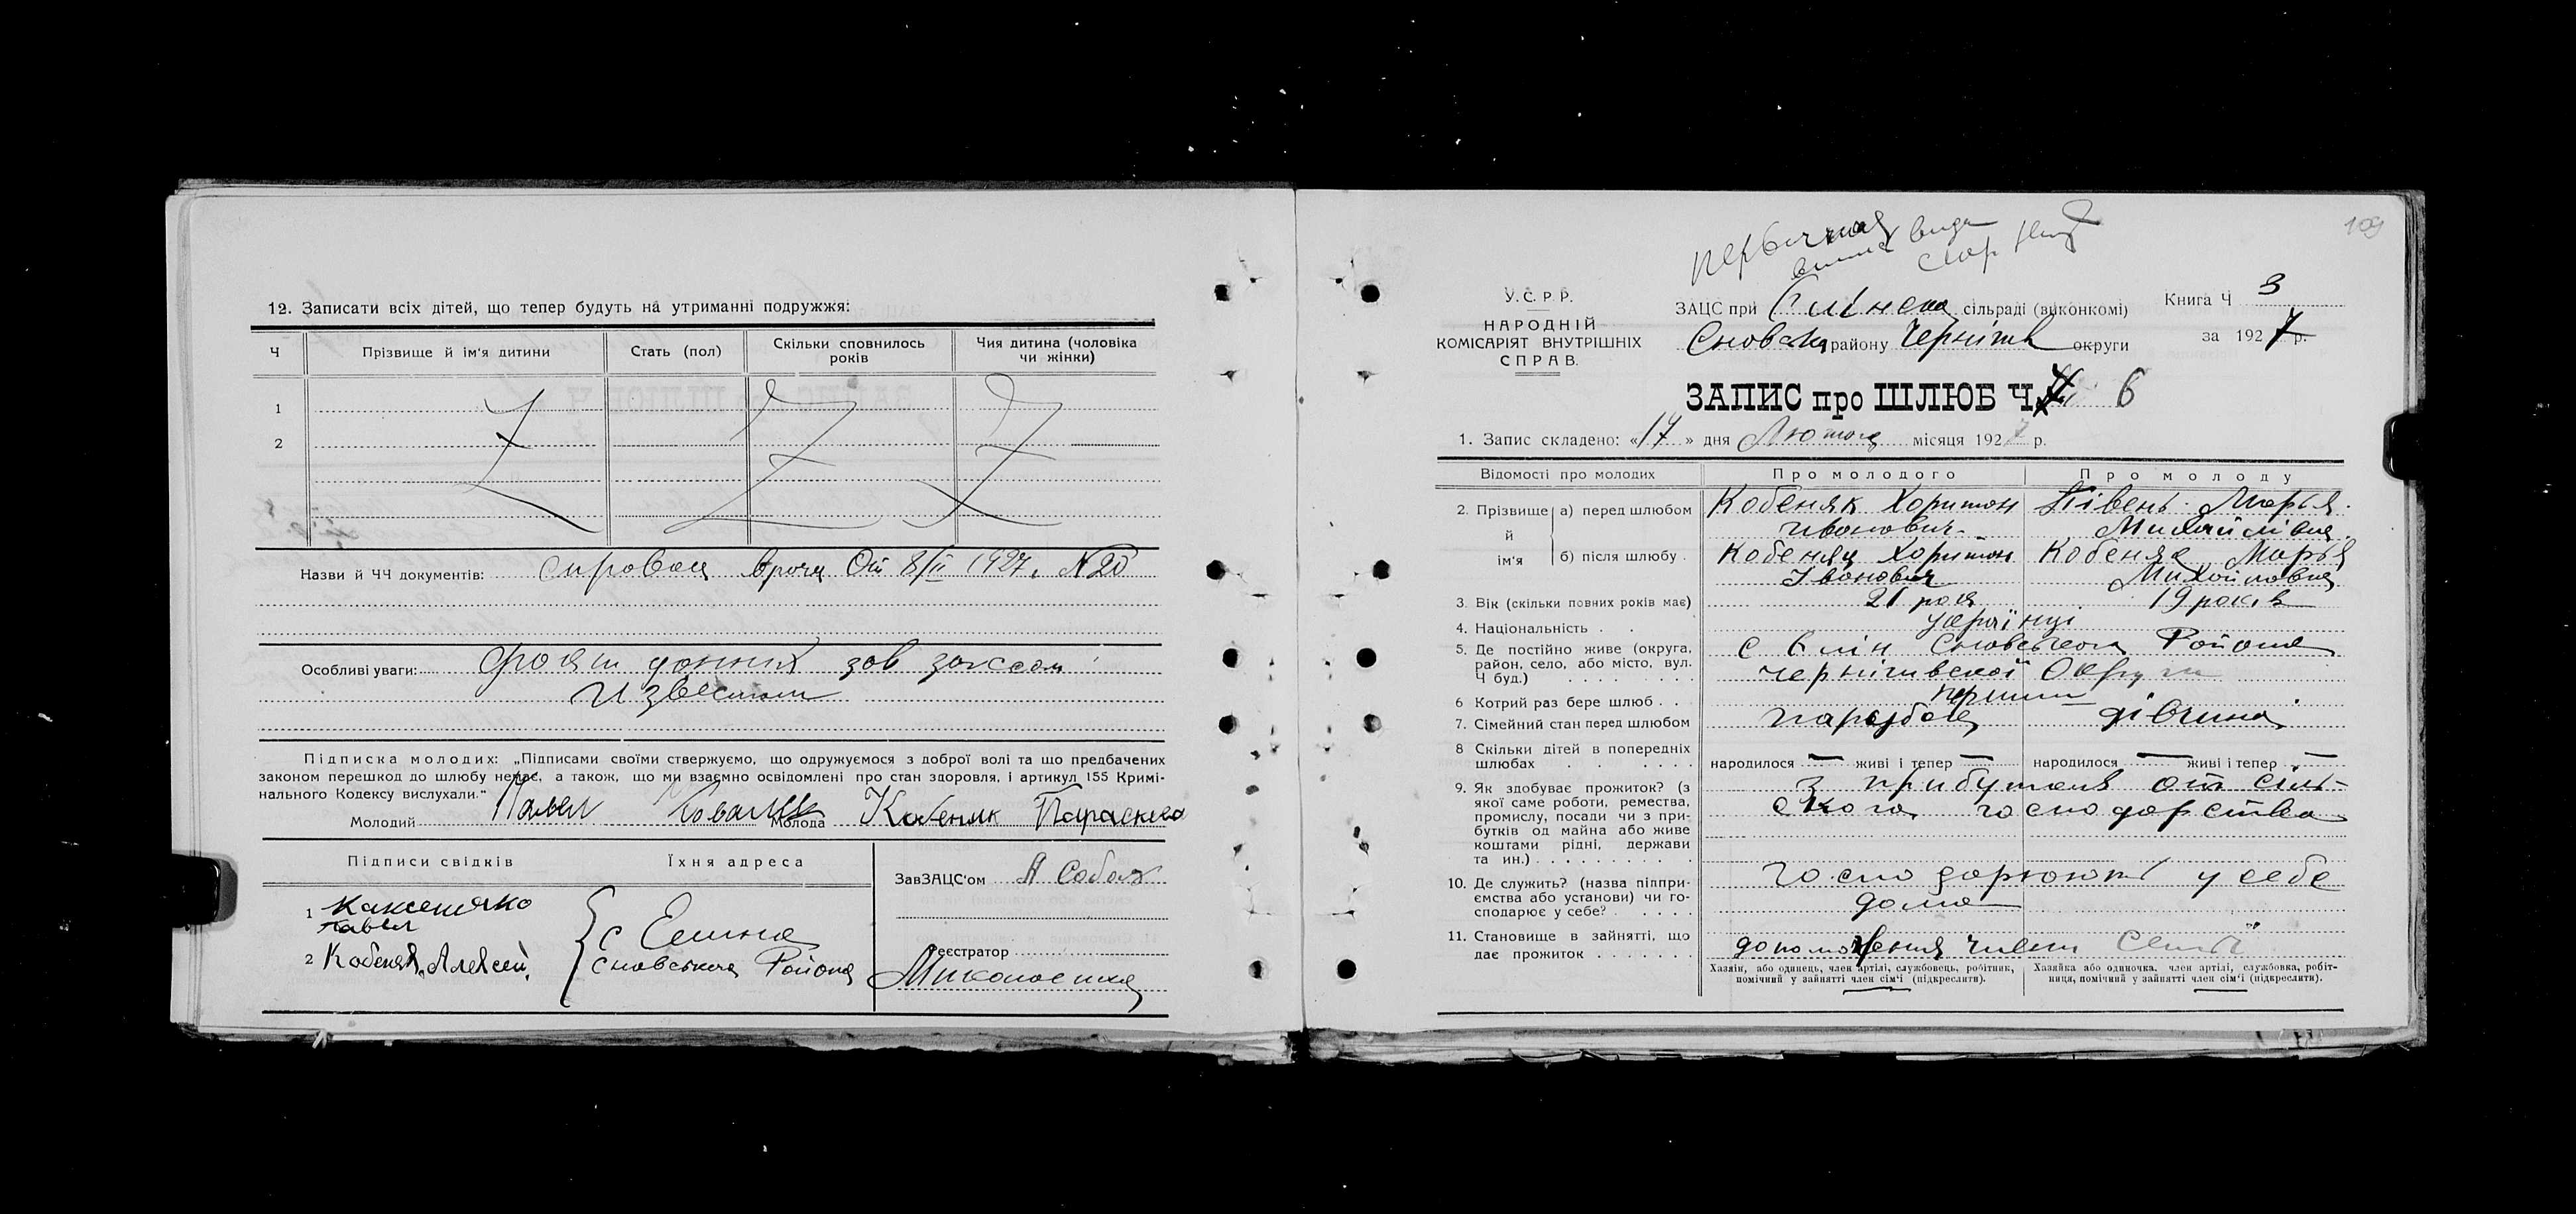 12. Записати всіх дітей, що тепер будуть на утриманні подружжя:
Ч
Прізвище й ім'я дитини
Стать (пол)
Скільки сповнилось років
Чия дитина (чоловіка чи жінки)
1
2
Назви й ЧЧ документів: От 8/II 1927. N 20
Особливі уваги:
Підписка молодих: „Підписами своїми стверджуємо, що одружуємося з доброї волі та що предбачених
законом перешкод до шлюбу немає, а також, що ми взаємно освідомлені про стан здоровля, і артикул 155 Кримі-
нального Кодексу вислухали."
Молодий Молода Кобеняк Параскева
Підписи свідків
Їхня адреса
1
Павел
2 Кобеняк Алексей
с Елина
Сновського Района
ЗавЗАЦС'ом
Реєстратор
109
У.С.Р.Р.
НАРОДНІЙ
КОМІСАРІЯТ ВНУТРІШНІХ
СПРАВ.
ЗАЦС при сільраді (виконкомі)
Сновськ району Черніг округи
Книга Ч 3
за 1927 р.
ЗАПИС про ШЛЮБ Ч 6
1. Запис складено: «17» дня Лютого місяця 1927 р.
Відомості про молодих
Про молодого
Про молоду
2. Прізвище й ім'я
а) перед шлюбом
Кобеняк Харитон
Иванович
Півень Марья
Михайлівна
б) після шлюбу
Кобеняк Харитон
Іванович
Кобеняк Марья
Михайловна
3. Вік (скільки повних років має)
21 рока
19 років
4. Національність
українці
5. Де постійно живе (округа,
район, село, або місто, вул.
Ч буд.)
с Єлін Сновського Района
Чернігивскої Округи
6 Котрий раз бере шлюб
перший
7. Сімейний стан перед шлюбом
парубок
дівчина
8 Скільки дітей в попередніх
шлюбах
народилося — живі і тепер —
народилося — живі і тепер —
9. Як здобуває прожиток? (з
якої саме роботи, ремества,
промислу, посади чи з при-
бутків од майна або живе
коштами рідні, держави
та ин.)
З прибутків от сіль-
ского господарства
10. Де служить? (назва підпри-
ємства або установи) чи го-
сподарює у себе?
господарюють у себе
дома
11. Становище в зайнятті, що
дає прожиток
член семьї
Хазяїн, або одинець, член артілі, службовець, робітник,
помічний у зайнятті член сім'ї (підкреслити).
Хазяйка або одиночка, член артілі, службовка, робіт-
ниця, помічний у зайнятті член сім'ї (підкреслити).